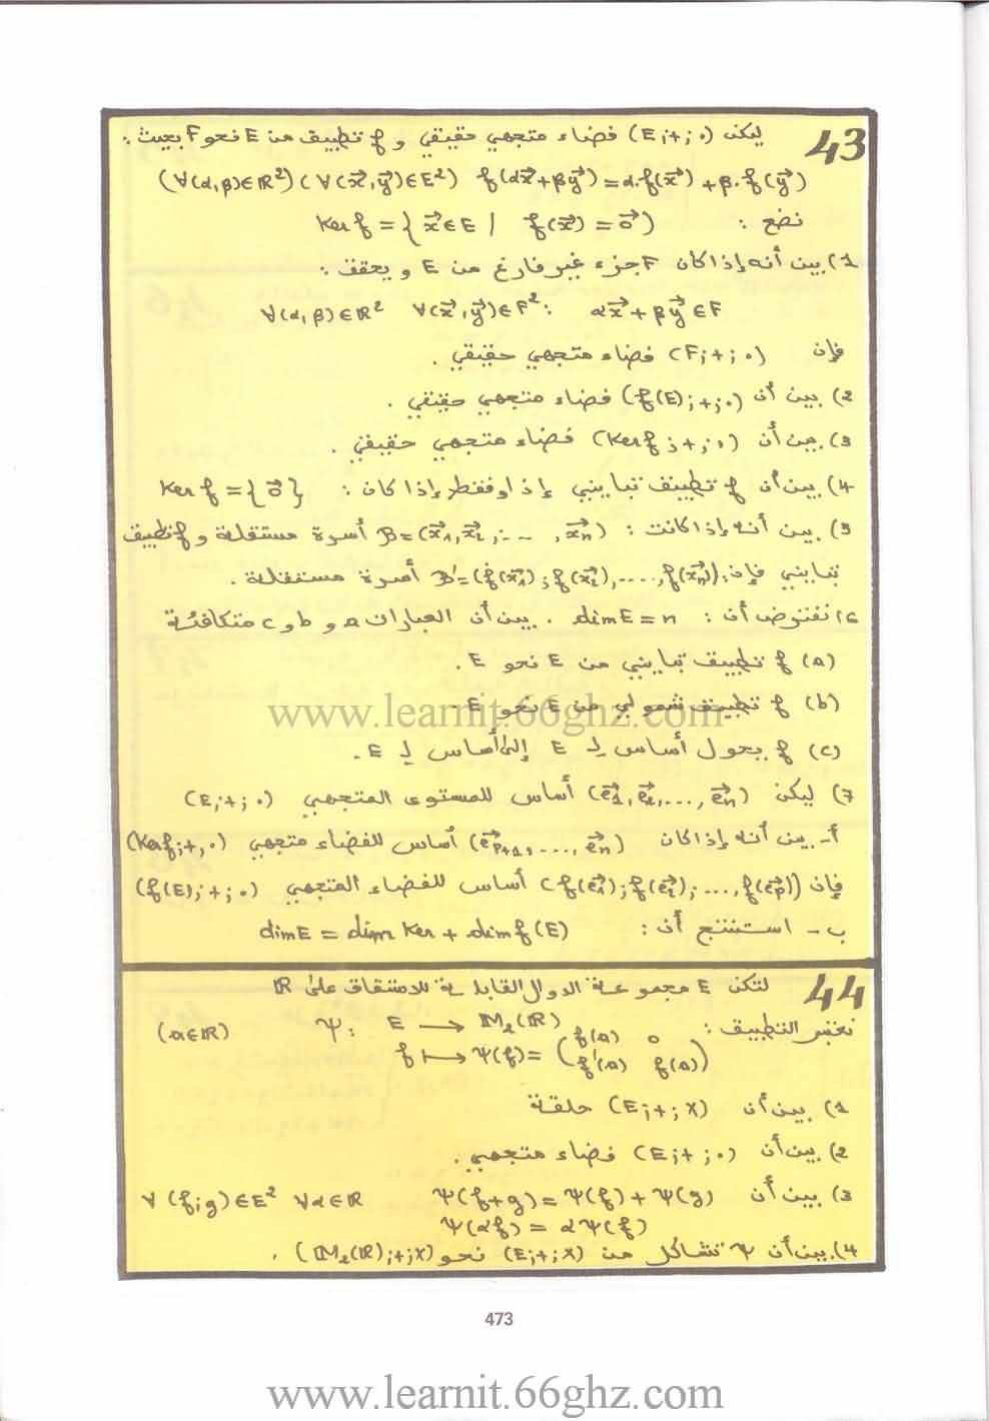 43
ليكن (E;+;.) فضاء متجهي حقيقي و f تطبيق من E نحو F بحيث:
(∀(α,β)∈ℝ²) (∀(x⃗,y⃗)∈E²) f(αx⃗+βy⃗)=α.f(x⃗)+β.f(y⃗)
نضع : Ker f = { x⃗∈E / f(x⃗) = 0⃗ }
1) بين أنه إذا كان F جزء غير فارغ من E و يحقق :
∀(α,β)∈ℝ² ∀(x⃗,y⃗)∈F²: αx⃗+βy⃗∈F
فإن (F;+;.) فضاء متجهي حقيقي .
2) بين أن (f(E);+;.) فضاء متجهي حقيقي .
3) بين أن (Kerf;+;.) فضاء متجهي حقيقي .
4) بين أن f تطبيق تبايني إذا وفقط إذا كان : Ker f = {0⃗}
5) بين أنه إذا كانت : B=(x⃗₁,x⃗₂,...,x⃗ₙ) أسرة مستقلة و f تطبيق
تبايني فإن: B'=(f(x⃗₁);f(x⃗₂),....,f(x⃗ₙ)) أسرة مستقلة .
6) نفترض أن : dimE=n . بين أن العبارات a و b و c متكافئة
(a) f تطبيق تبايني من E نحو E .
(b) f تطبيق شمولي من E نحو E
(c) f يحول أساس لـ E إلى أساس لـ E .
7) ليكن (e⃗₁,e⃗₂,...,e⃗ₙ) أساس للمستوى المتجهي (E,+;.)
أ- بين أنه إذا كان (e⃗ₚ₊₁,...,e⃗ₙ) أساس للفضاء متجهي (Kerf;+,.)
فإن (f(e⃗₁);f(e⃗₂);...,f(e⃗ₚ)) أساس للفضاء المتجهي (f(E);+;.)
ب- استنتج أن : dimE = dim Ker + dim f(E)
44
لتكن E مجموعة الدوال القابلة للاشتقاق على ℝ
نعتبر التطبيق : Ψ: E → M₂(ℝ) (a∈ℝ)
f ↦ Ψ(f)= ( f(a) 0
f'(a) f(a) )
1) بين أن (E;+;×) حلقة
2) بين أن (E;+;.) فضاء متجهي .
3) بين أن Ψ(f+g)=Ψ(f)+Ψ(g) ∀(f;g)∈E² ∀α∈ℝ
Ψ(αf) = αΨ(f)
4) بين أن Ψ تشاكل من (E;+;×) نحو (M₂(ℝ);+;×) .
www.learnit.66ghz.com
473
www.learnit.66ghz.com